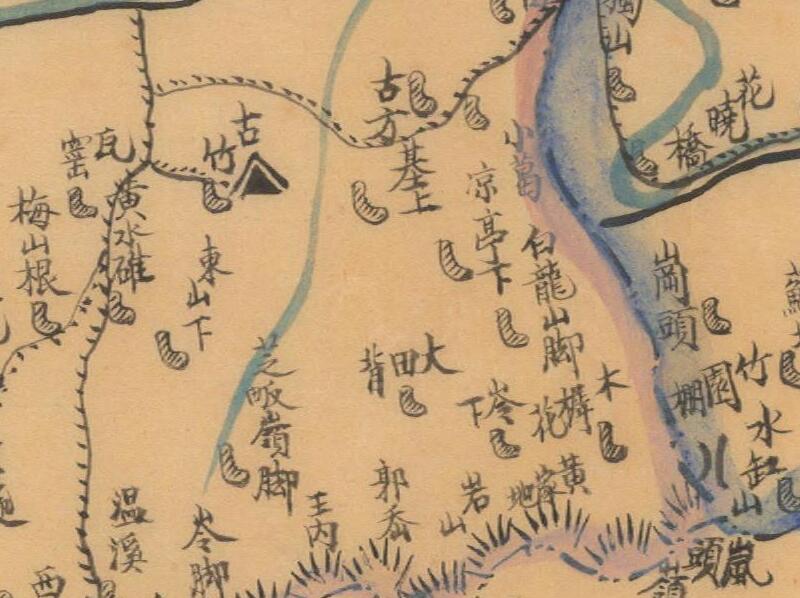 古竹
古方
基上
瓦窑
黄水碓
梅山根
東山下
凉亭下
小葛
白龍山脚
花
曉
橋
崗頭
大田背
芝畈嶺脚
岺下
木樨花
竹園棚
水缸山
黄
地
郭岙
岩山
王内
温溪
岺脚
嵐頭
西